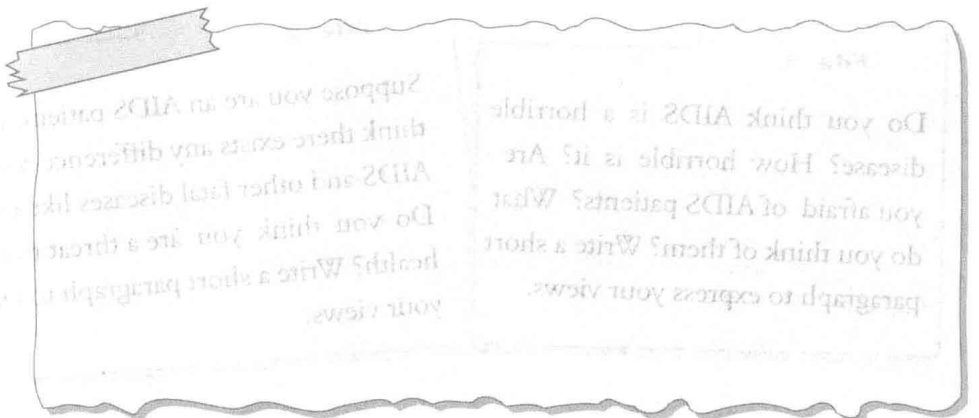 Do you think AIDS is a horrible
disease? How horrible is it? Are
you afraid of AIDS patients? What
do you think of them? Write a short
paragraph to express your views.
Suppose you are an AIDS patient
think there exists any difference
AIDS and other fatal diseases
Do you think you are a threat
health? Write a short paragraph
your views.